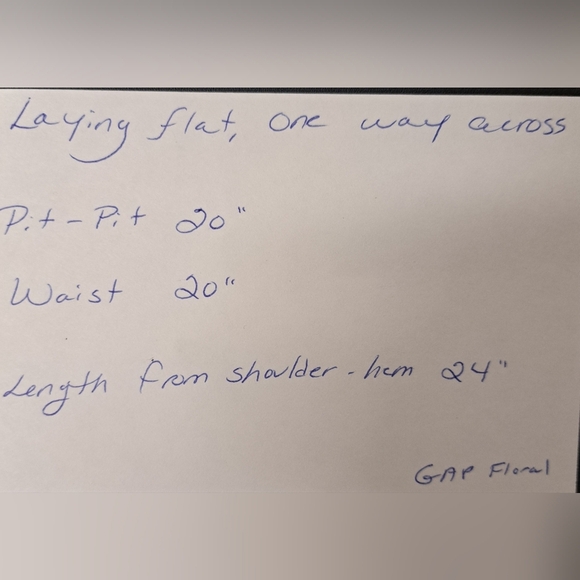 Laying flat, one way across
Pit - Pit 20"
Waist 20"
Length from shoulder - hem 24"
GAP Floral